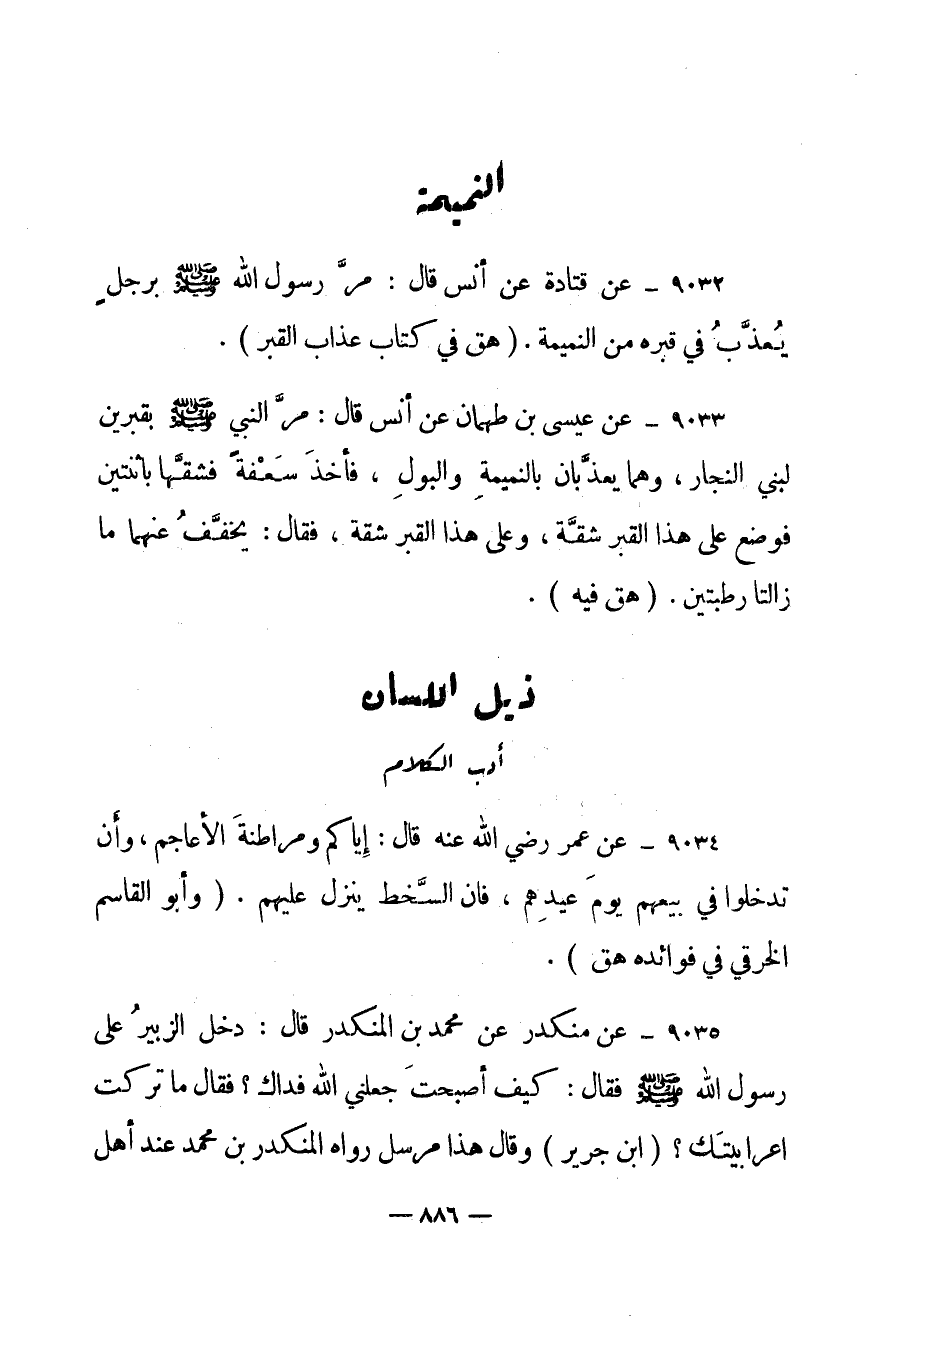 النميمة
٩٠٣٢ ـ عن قتادة عن أنس قال : مرَّ رسول الله ﷺ برجلٍ
يُعذَّبُ في قبره من النميمة . ( هق في كتاب عذاب القبر ) .
٩٠٣٣ ـ عن عيسى بن طهمان عن أنس قال : مرَّ النبي ﷺ بقبرين
لبني النجار ، وهما يعذَّبان بالنميمةِ والبولِ ، فأخذَ سَعَفْةً فشقَّها باثنتين
فوضع على هذا القبر شقَّة ، وعلى هذا القبر شقة ، فقال : يخفَّفُ عنهما ما
زالتا رطبتين . ( هق فيه ) .
ذيل اللسان
أدب الكلام
٩٠٣٤ ـ عن عمر رضي الله عنه قال : إياكم ومراطنةَ الأعاجم ، وأن
تدخلوا في بيعهم يومَ عيدِهم ، فان السَّخط ينزل عليهم . ( وأبو القاسم
الخرقي في فوائده هق ) .
٩٠٣٥ ـ عن منكدر عن محمد بن المنكدر قال : دخل الزبيرُ على
رسول الله ﷺ فقال : كيف أصبحتَ جعلني الله فداك ؟ فقال ما تركت
اعرابيتَك ؟ ( ابن جرير ) وقال هذا مرسل رواه المنكدر بن محمد عند أهل
— ٨٨٦ —